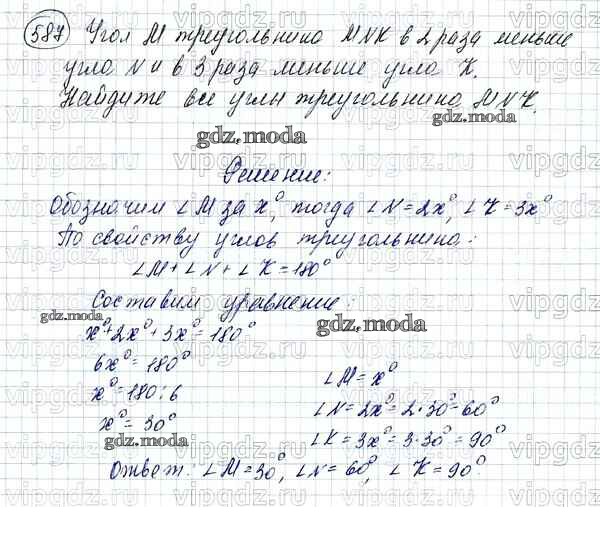 587 Угол M треугольника MNK в 2 раза меньше
угла N и в 3 раза меньше угла K.
Найдите все углы треугольника MNK.
gdz.moda
gdz.moda
Решение:
Обозначим ∠M за x°, тогда ∠N=2x°, ∠K=3x°
По свойству углов треугольника:
∠M+∠N+∠K=180°
Составим уравнение:
gdz.moda
gdz.moda
x°+2x°+3x°=180°
6x°=180°
x°=180:6
x°=30°
gdz.moda
∠M=x°
∠N=2x°=2·30°=60°
∠K=3x°=3·30°=90°
Ответ: ∠M=30°, ∠N=60°, ∠K=90°
gdz.moda